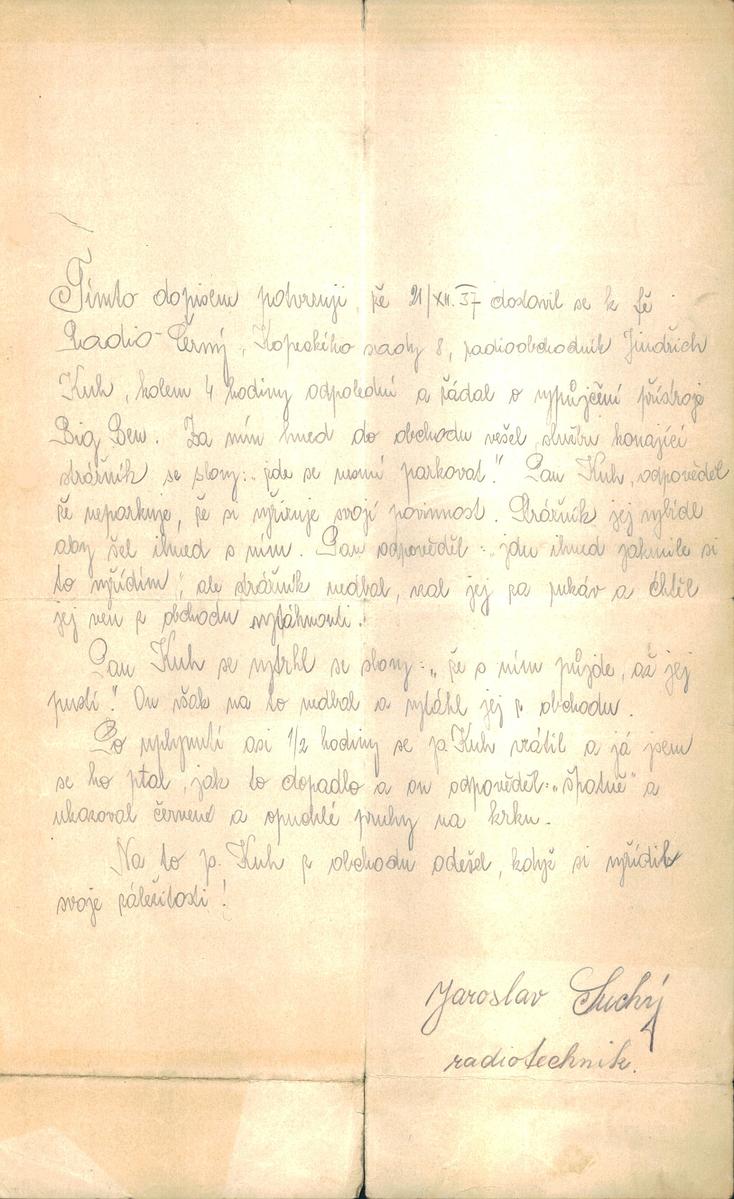 Tímto dopisem potvrzuji, že 21/XII. 37 dostavil se k fě
Radio-Černý, Kopeckého sady 8, radioobchodník Jindřich
Kuh, kolem 4 hodiny odpolední a žádal o vypůjčení přístroje
Big Ben. Za ním hned do obchodu vešel, službu konající
strážník se slovy: „zde se nesmí parkovat." Pan Kuh, odpověděl
že neparkuje, že si vyřizuje svojí povinnost. Strážník jej vybídl
aby šel ihned s ním. Pan odpověděl: „jdu ihned jakmile si
to vyřídím", ale strážník nedbal, vzal jej za rukáv a chtěl
jej ven z obchodu vytáhnouti.
Pan Kuh se vytrhl se slovy: „že s ním půjde, až jej
pustí." On však na to nedbal a vytáhl jej z obchodu.
Po uplynutí asi 1/2 hodiny se p. Kuh vrátil a já jsem
se ho ptal, jak to dopadlo a on odpověděl: „špatně" a
ukazoval červené a opuchlé pruhy na krku.
Na to p. Kuh z obchodu odešel, když si vyřídil
svoje záležitosti!
Jaroslav Suchý
radiotechnik.